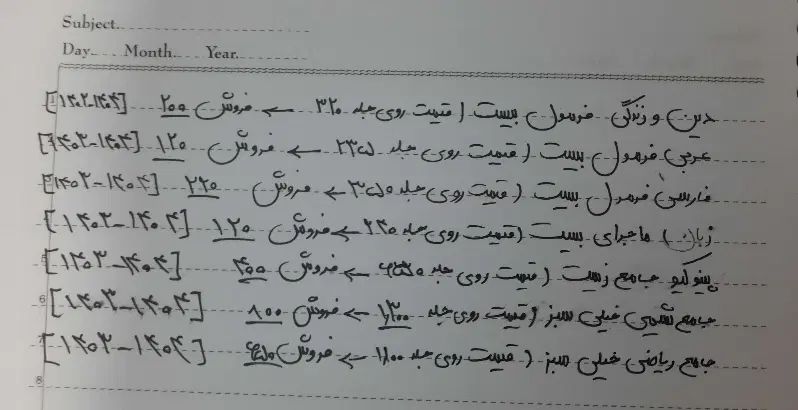 Subject
Day Month Year
دین و زندگی فرمول بیست ( قیمت روی جلد ۳۲۰ ← فروش ۲۰۰ [۱۴۰۲-۱۴۰۴]
عربی فرمول بیست ( قیمت روی جلد ← فروش ۱۲۰ [۱۴۰۳-۱۴۰۴]
فارسی فرمول بیست ( قیمت روی جلد ← فروش ۲۲۰ [۱۴۰۳-۱۴۰۴]
زبان ) ماجرای بیست ( قیمت روی جلد ۲۳۰ ← فروش ۱۲۰ [۱۴۰۳-۱۴۰۴]
پینوکیو جامع زیست ( قیمت روی جلد ← فروش ۴۰۰ [۱۴۰۳-۱۴۰۴]
جامع شیمی خیلی سبز ( قیمت روی جلد ۱,۳۰۰ ← فروش ۸۰۰ [۱۴۰۳-۱۴۰۴]
جامع ریاضی خیلی سبز ( قیمت روی جلد ۱۱۰۰ ← فروش [۱۴۰۳-۱۴۰۴]
8